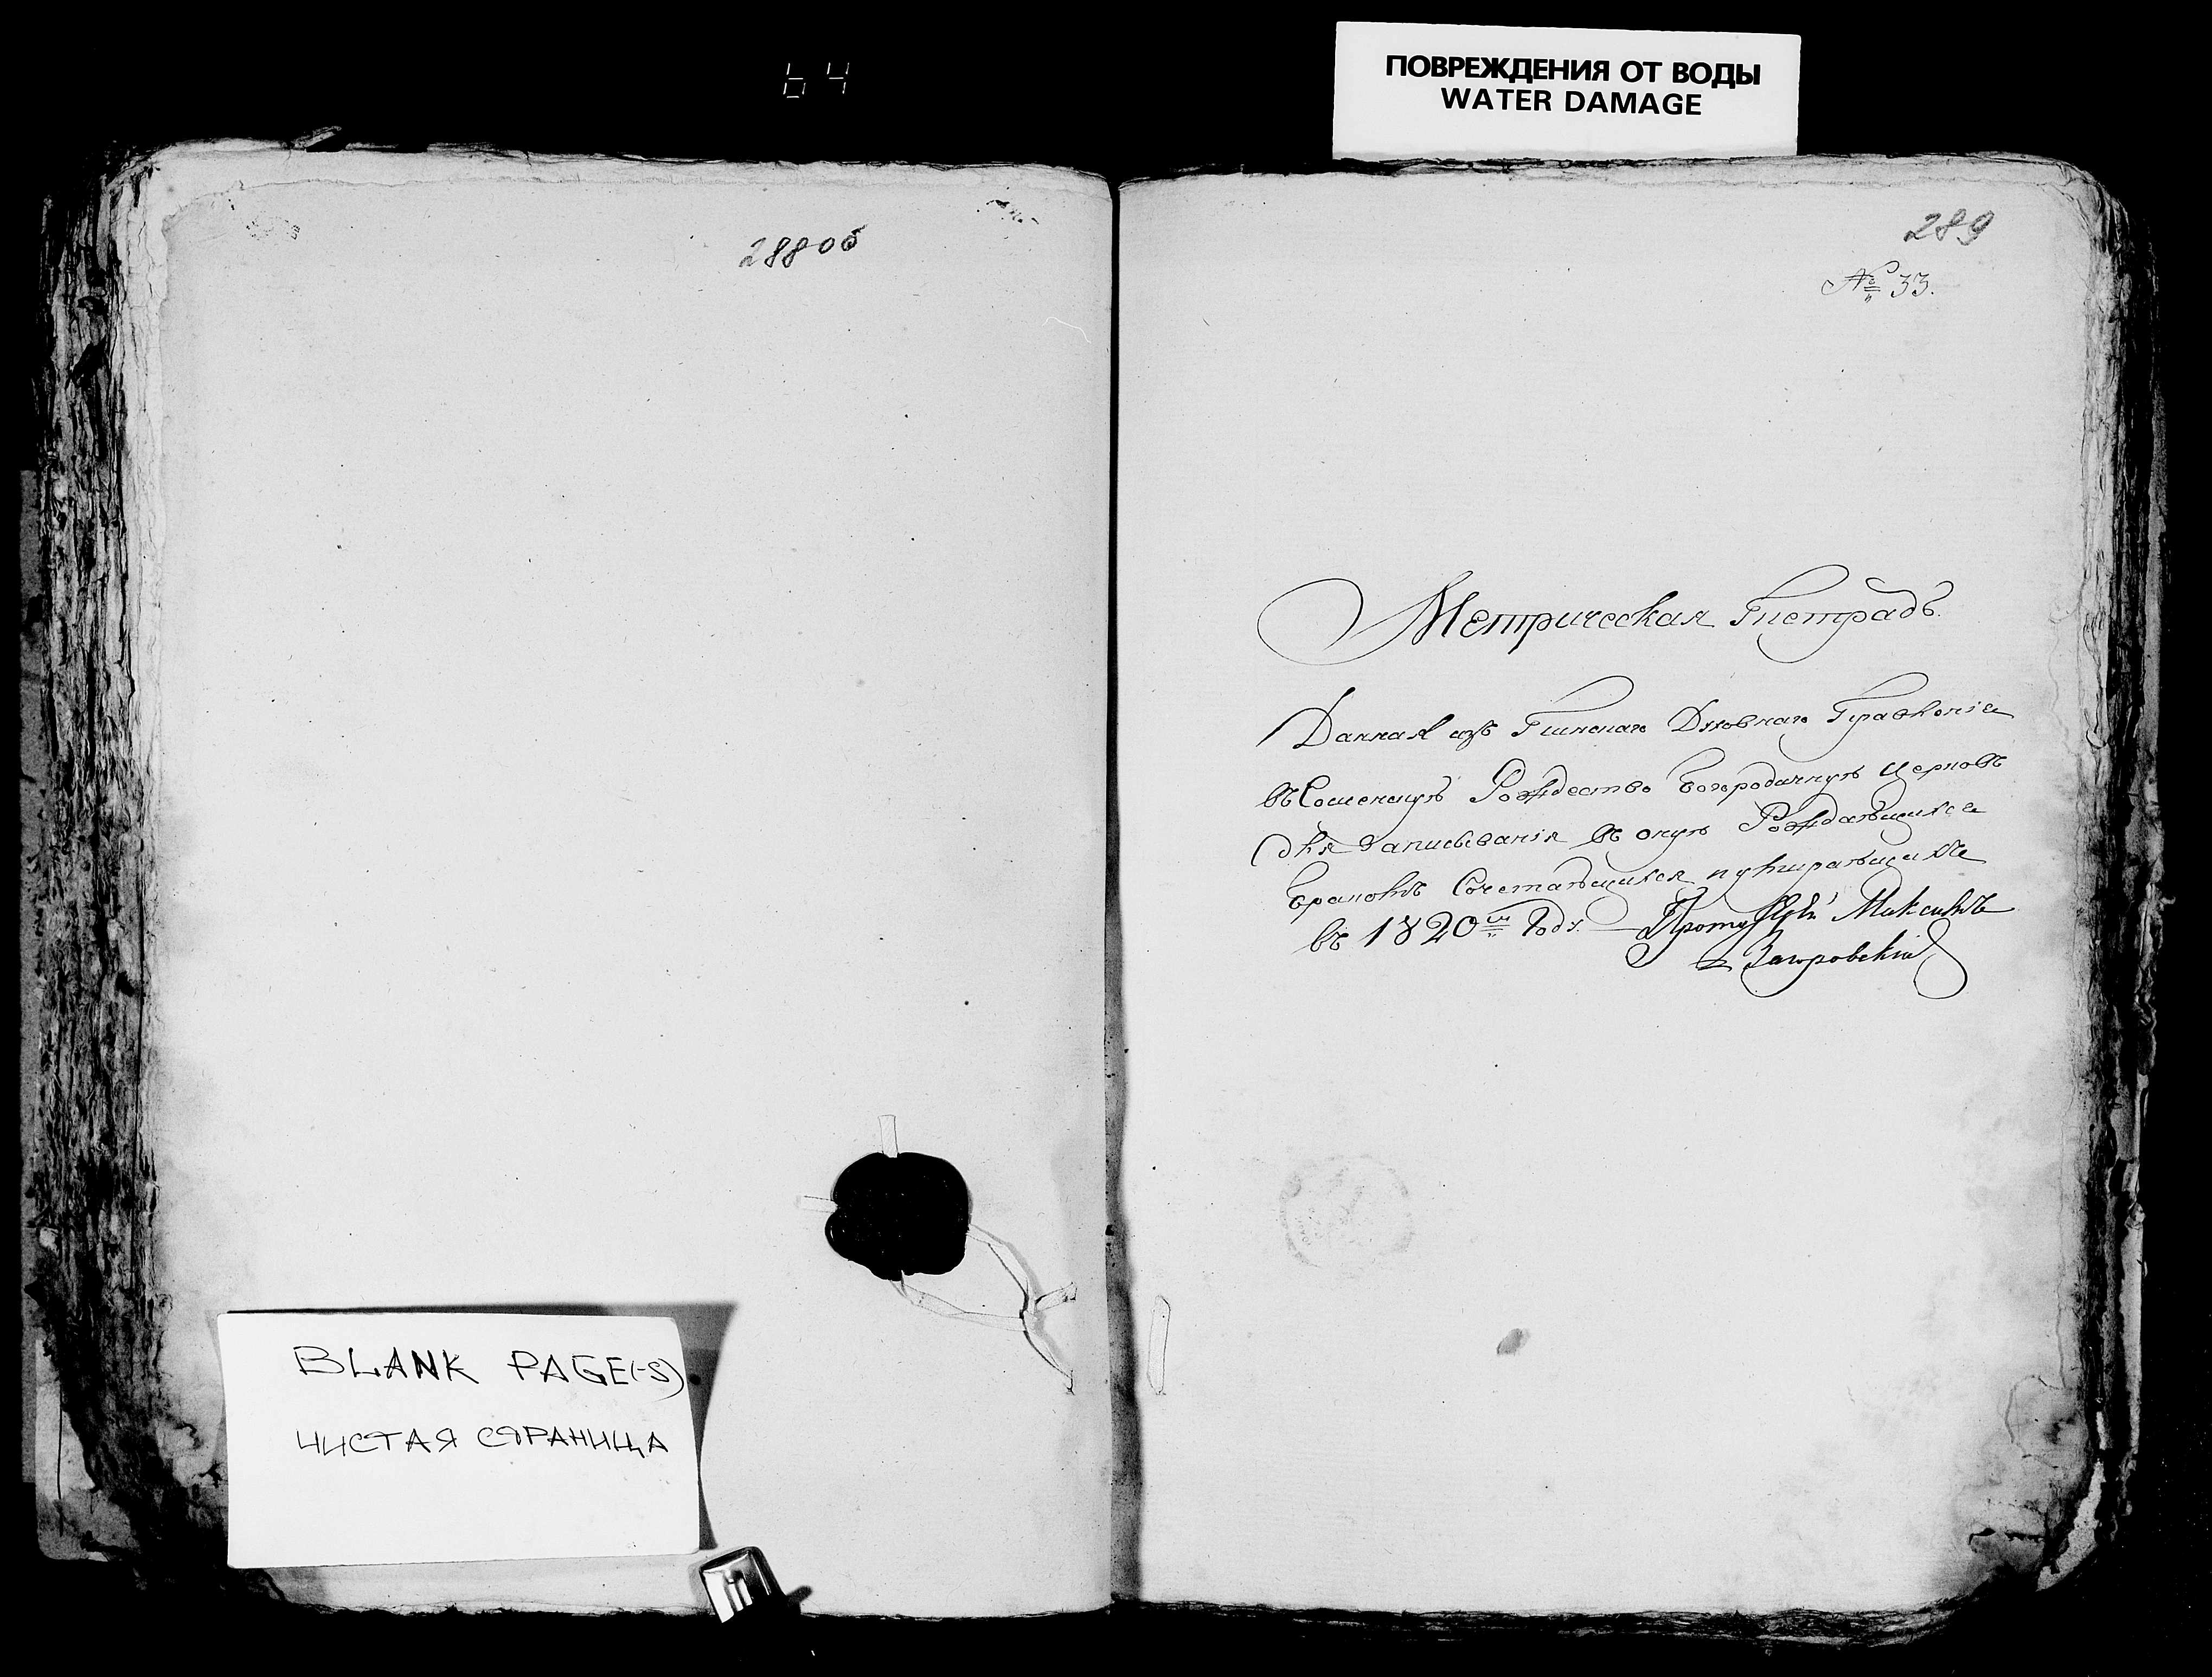 64
ПОВРЕЖДЕНИЯ ОТ ВОДЫ
WATER DAMAGE
288об
289
№ 33.
Метрическая Тетрадь.
Данная изъ Пинскаго Духовнаго Правленія
въ Рождество Богородичную Церковь
для записыванія въ оную Рождающихся
бракомъ Сочетающихся и умирающихъ
въ 1820мъ Годѣ. Максимъ
BLANK PAGE(-S)
ЧИСТАЯ СТРАНИЦА